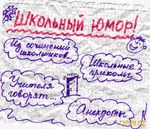 Школьный юмор!
Из сочинений
школьников...
Школьные
приколы
Учителя
говорят...
Анекдоты